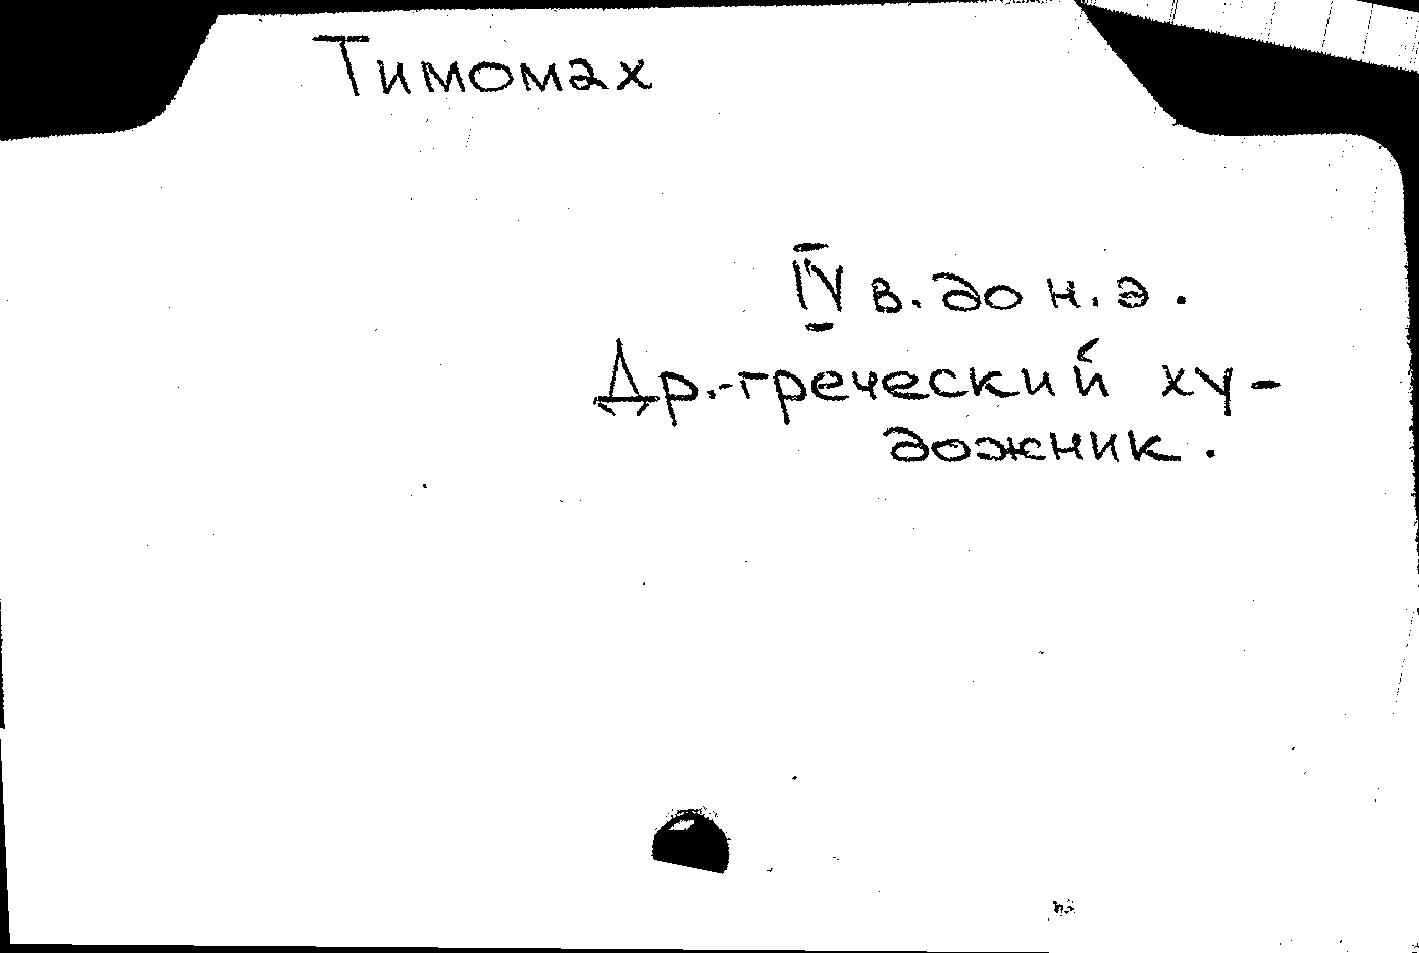 Тимомах
IV в. до н.э.
Др.-греческий ху-
дожник.